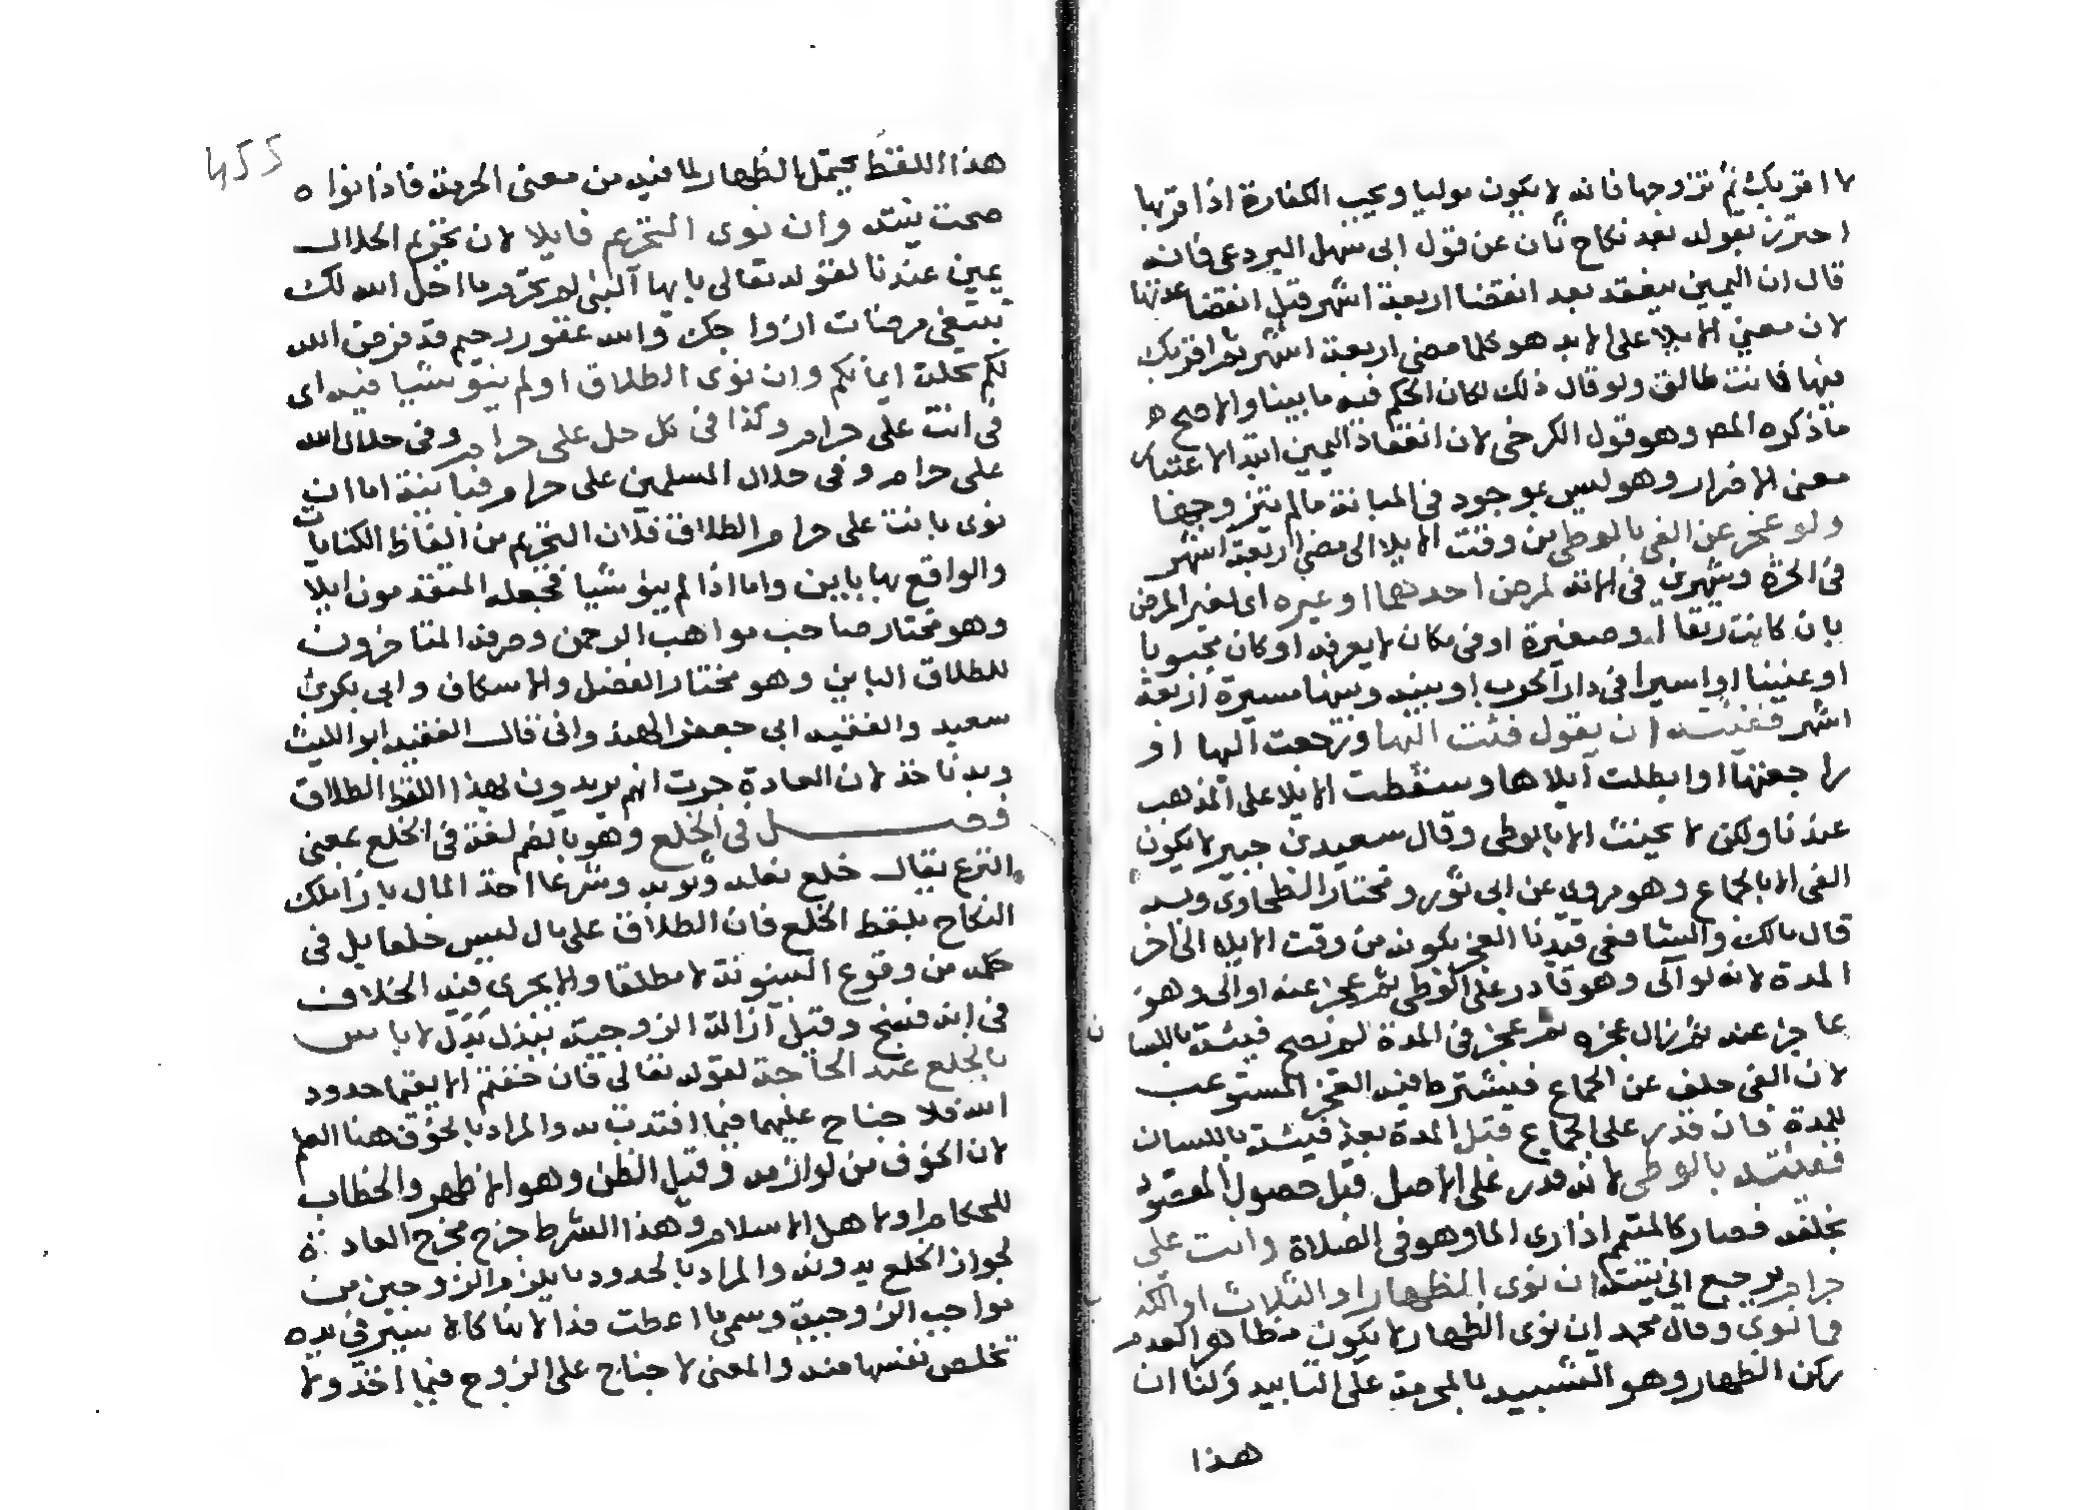 لا اقربك ثم تزوجها فانه لا يكون موليا ويجب الكفارة اذا قربها
احترز بقوله بعد نكاح ثان عن قول ابى سهل البردعى فانه
قال ان اليمين ينعقد بعد انقضا اربعة اشهر قبل انقضا عدتها
لان معنى الايلا على الابد هو كلما مضى اربعة اشهر ثم اقربك
فيها فانت طالق ولو قال ذلك لكان الحكم فيه ما بينا والاصح
ما ذكره المص وهو قول الكرخى لان انعقاد اليمين ابتدا لاعتبار
معنى الاضرار وهو ليس بموجود فى المبانة مالم يتزوجها
ولو عجز عن الفى بالوطى من وقت الايلا الى مضى اربعة اشهر
فى الحرة وشهرين فى الامة لمرض احدهما او غيره اى لغير المرض
بان كانت رتقا او صغيرة او فى مكان لا يعرفه او كان مجبوبا
او عنينا او اسيرا فى دار الحرب او بينه وبينها مسيرة اربعة
اشهر ففيئته ان يقول فئت اليها ورجعت اليها او
راجعتها او ابطلت ايلاها وسقطت الايلا على المذهب
عندنا ولكن لا يحنث الا بالوطى وقال سعيد بن جبير لا يكون
الفى الا بالجماع وهو مروى عن ابى ثور ومختار الطحاوى وبه
قال مالك والشافعى قيدنا العجز بكونه من وقت الايلا الى اخر
المدة لانه لو آلى وهو قادر على الوطى ثم عجز عنه او آلى وهو
عاجز عنه ثم زال عجزه ثم عجز فى المدة لم تصح فيئته باللسا
ن
لان الفى خلف عن الجماع فيشترط فيه العجز المستوعب
للمدة فان قدر على الجماع قبل المدة بعد فيئته باللسان
ففيئته بالوطى لانه قدر على الاصل قبل حصول المقصود
بخلفه فصار كالمتيمم اذا رى الما وهو فى الصلاة وانت على
حرام يرجع الى نيته ان نوى الظهار او الثلاث او الكذب
فما نوى وقال محمد ان نوى الظهار لا يكون مظاهرا لعدم
ركن الظهار وهو التشبيه بالمحرمة على التابيد ولنا ان
هذا
455
هذا اللفظ يحتمل الظهار لما فيه من معنى الحرمة فاذا نواه
صحت نيته وان نوى التحريم فايلا لان تحريم الحلال
يمين عندنا لقوله تعالى يايها النبى لم تحرم ما احل الله لك
تبتغى مرضات ازواجك والله غفور رحيم قد فرض الله
لكم تحلة ايمانكم وان نوى الطلاق او لم ينو شيا فيه اى
فى انت على حرام وكذا فى كل حل على حرام وفى حلال الله
على حرام وفى حلال المسلمين على حرام فباينة اما ان
نوى بانت على حرام الطلاق فلان التحريم من الفاظ الكنايات
والواقع بها باين واما اذا لم ينو شيا فجعله المتقدمون ايلا
وهو مختار صاحب مواهب الرحمن وصرفه المتاخرون
للطلاق الباين وهو مختار الفضل والاسكاف وابى بكر بن
سعيد والفقيه ابى جعفر الهندوانى قال الفقيه ابو الليث
وبه ناخذ لان العادة جرت انهم يريدون بهذا اللفظ الطلاق
فصل فى الخلع وهو بالضم لغة فى الخلع بمعنى
النزع يقال خلع نعله وثوبه وشرعا اخذ المال بازا ملك
النكاح بلفظ الخلع فان الطلاق على مال ليس خلعا بل فى
حكمه من وقوع البينونة لا مطلقا والا يجرى فيه الخلاف
فى انه فسخ وقيل ازالة الزوجية ببذل بدل لا باس
بالخلع عند الحاجة لقوله تعالى فان خفتم الا يقيما حدود
الله فلا جناح عليهما فيما افتدت به والمراد بالخوف هنا العلم
لان الخوف من لوازمه وقيل الظن وهو الاظهر والخطاب
للحكام او لاهل الاسلام وهذا الشرط خرج مخرج العادة
لجواز الخلع بدونه والمراد بالحدود ما يلزم الزوجين من
مواجب الزوجية وسمى ما اعطت فدا لانها كالاسير فى يده
تخلص نفسها منه والمعنى لا جناح على الزوج فيما اخذ ولا